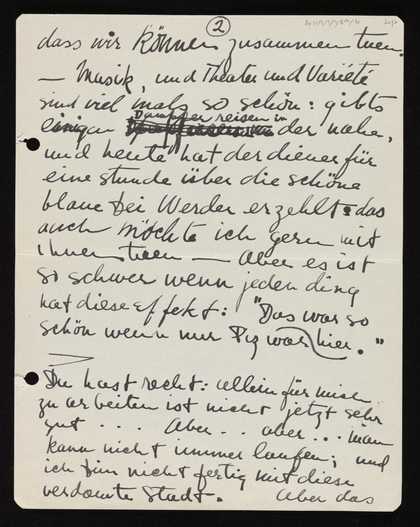 2
dass wir können zusammen tuen.
— Musik, und Theater und Variété
sind viel mals so schön: gibts
einigen Dampfer reisen in der nahe,
und heute hat der diener für
eine stunde über die schöne
blaue bei Werder erzehlt: das
auch möchte ich gern mit
Ihnen tuen — Aber es ist
so schwer wenn jeden ding
hat diese effekt: "Das war so
schön wenn nur Pig war hier."
Du hast recht: allein für mich
zu arbeiten ist nicht jetzt sehr
gut .... Aber.. aber... man
kann nicht immer laufen; und
ich bin nicht fertig mit diese
verdomte Stadt. Aber das